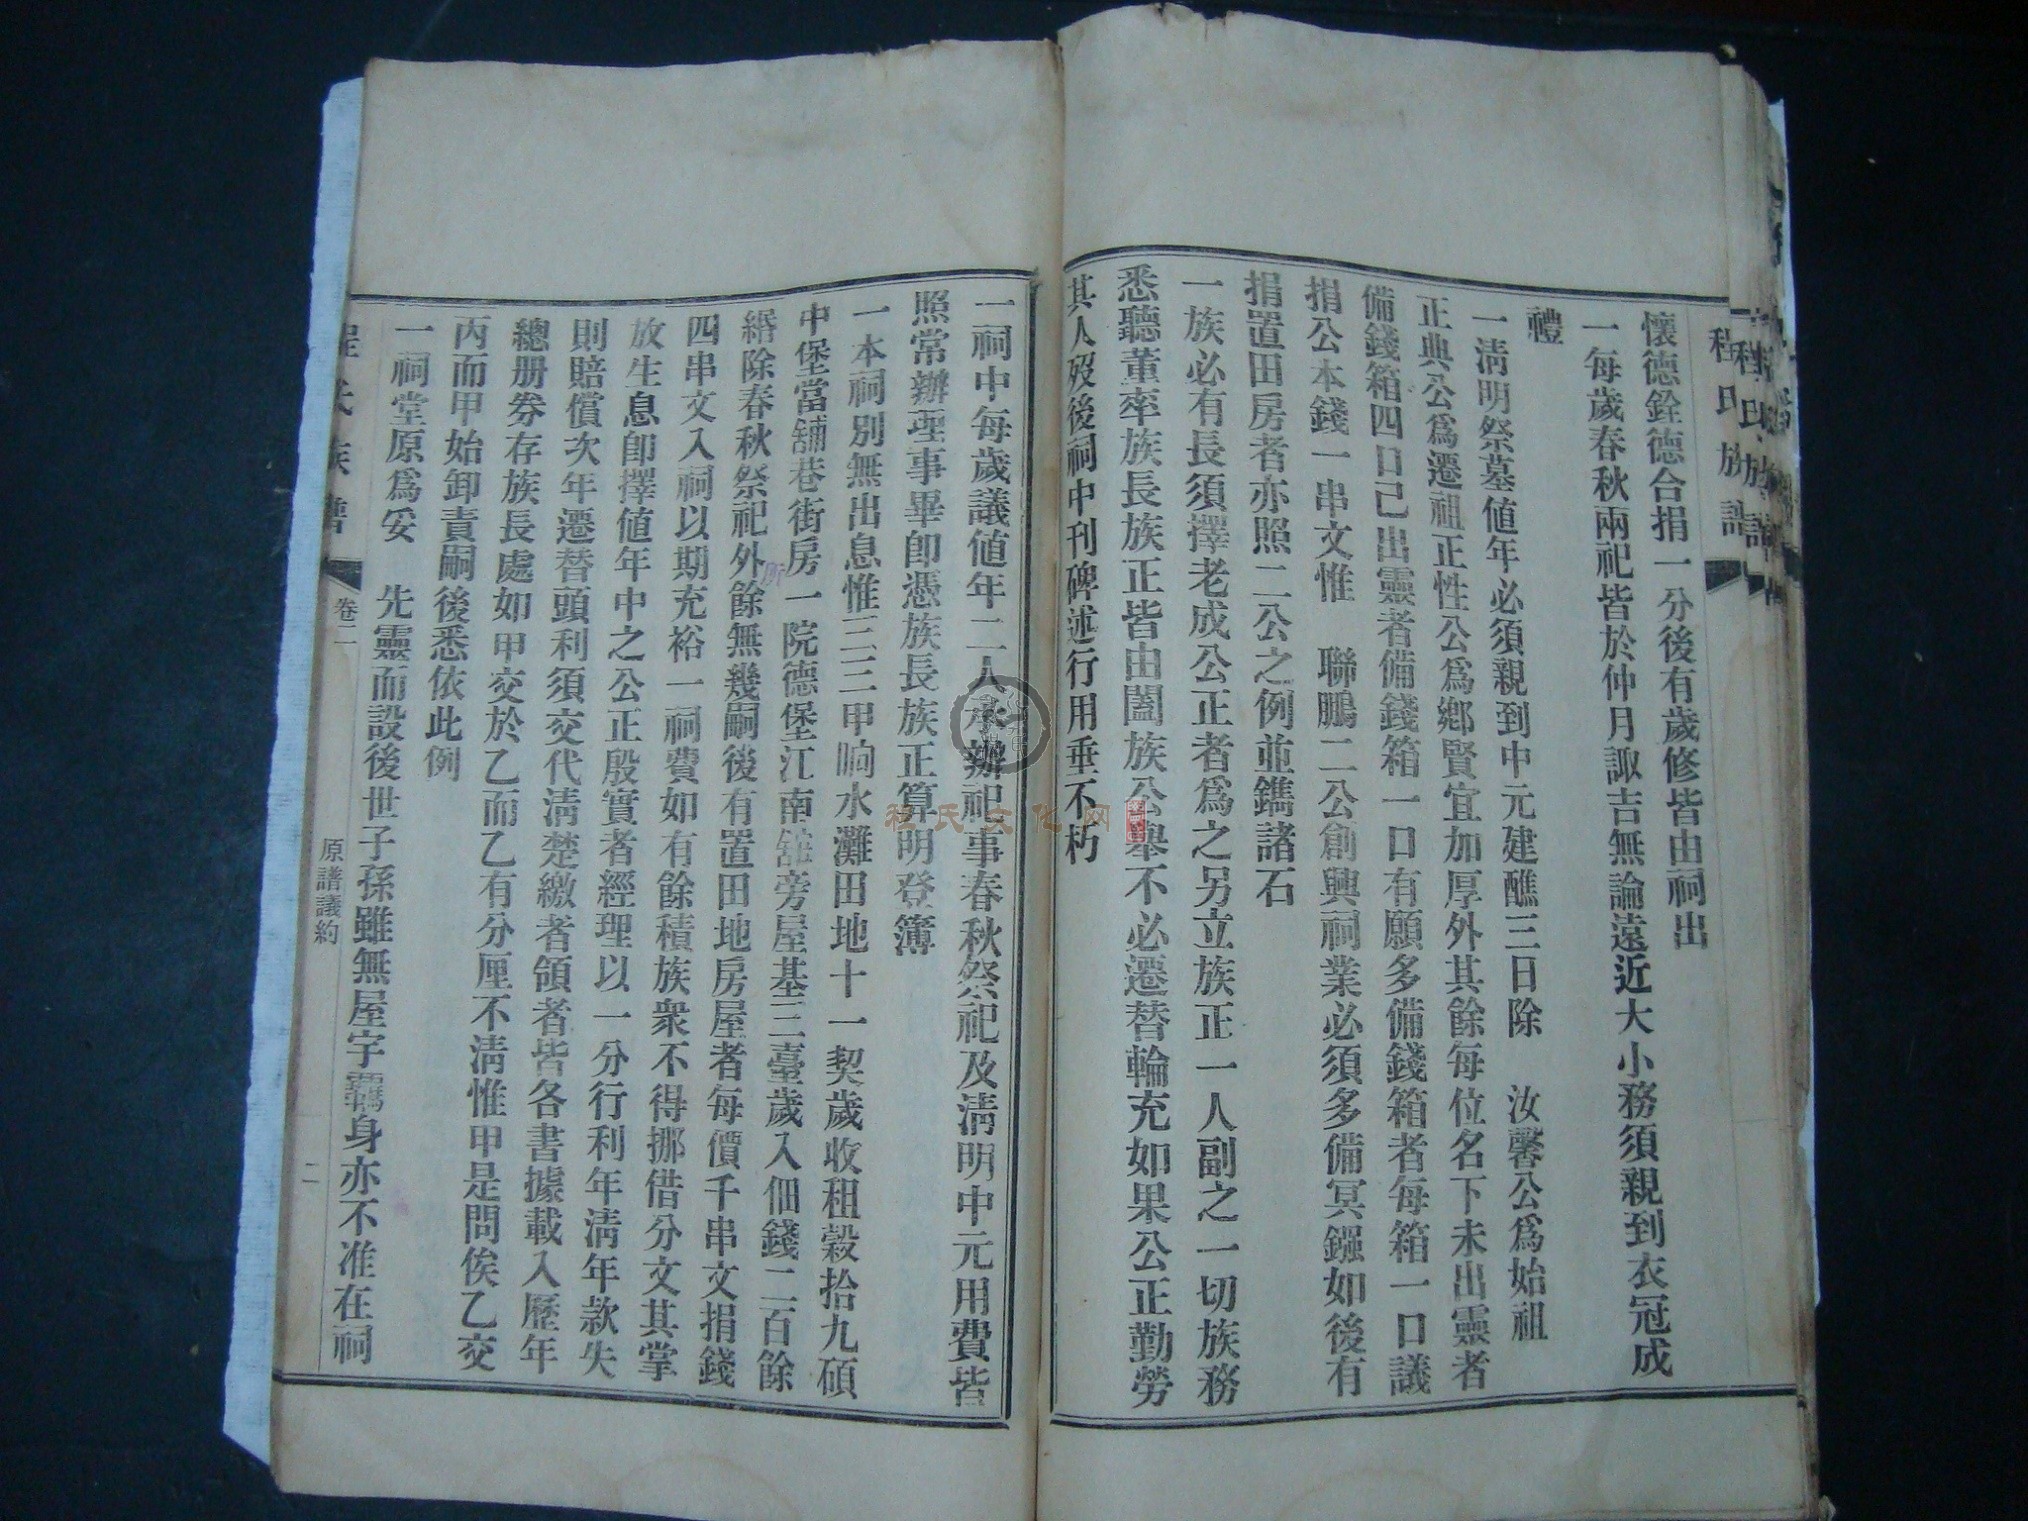 程氏族譜
懷德銓德合捐一分後有歲修皆由祠出
一每歲春秋兩祀皆於仲月諏吉無論遠近大小務須親到衣冠成
禮
一淸明祭墓値年必須親到中元建醮三日除　汝馨公爲始祖
正典公爲遷祖正性公爲鄕賢宜加厚外其餘每位名下未出靈者
備錢箱四口己出靈者備錢箱一口有願多備錢箱者每箱一口議
捐公本錢一串文惟　聯鵬二公創興祠業必須多備冥鏹如後有
捐置田房者亦照二公之例並鐫諸石
一族必有長須擇老成公正者爲之另立族正一人副之一切族務
悉聽董率族長族正皆由闔族公舉不必遷替輪充如果公正勤勞
其人歿後祠中刊碑述行用垂不朽
一祠中每歲議値年二人承辦祀事春秋祭祀及淸明中元用費皆
照常辦理事畢卽憑族長族正算明登簿
一本祠別無出息惟三三甲响水灘田地十一契歲收租穀拾九碩
中堡當舖巷街房一院德堡江南舘旁屋基三臺歲入佃錢二百餘
緡除春秋祭祀外餘無幾嗣後有置田地房屋者每價千串文捐錢
所
四串文入祠以期充裕一祠費如有餘積族衆不得挪借分文其掌
放生息卽擇値年中之公正殷實者經理以一分行利年淸年款失
則賠償次年遷替頭利須交代淸楚繳者領者皆各書據載入歷年
總册劵存族長處如甲交於乙而乙有分厘不淸惟甲是問俟乙交
丙而甲始卸責嗣後悉依此例
一祠堂原爲妥　先靈而設後世子孫雖無屋宇羈身亦不准在祠
程氏族譜　卷二　原譜議約　二
程氏文化网